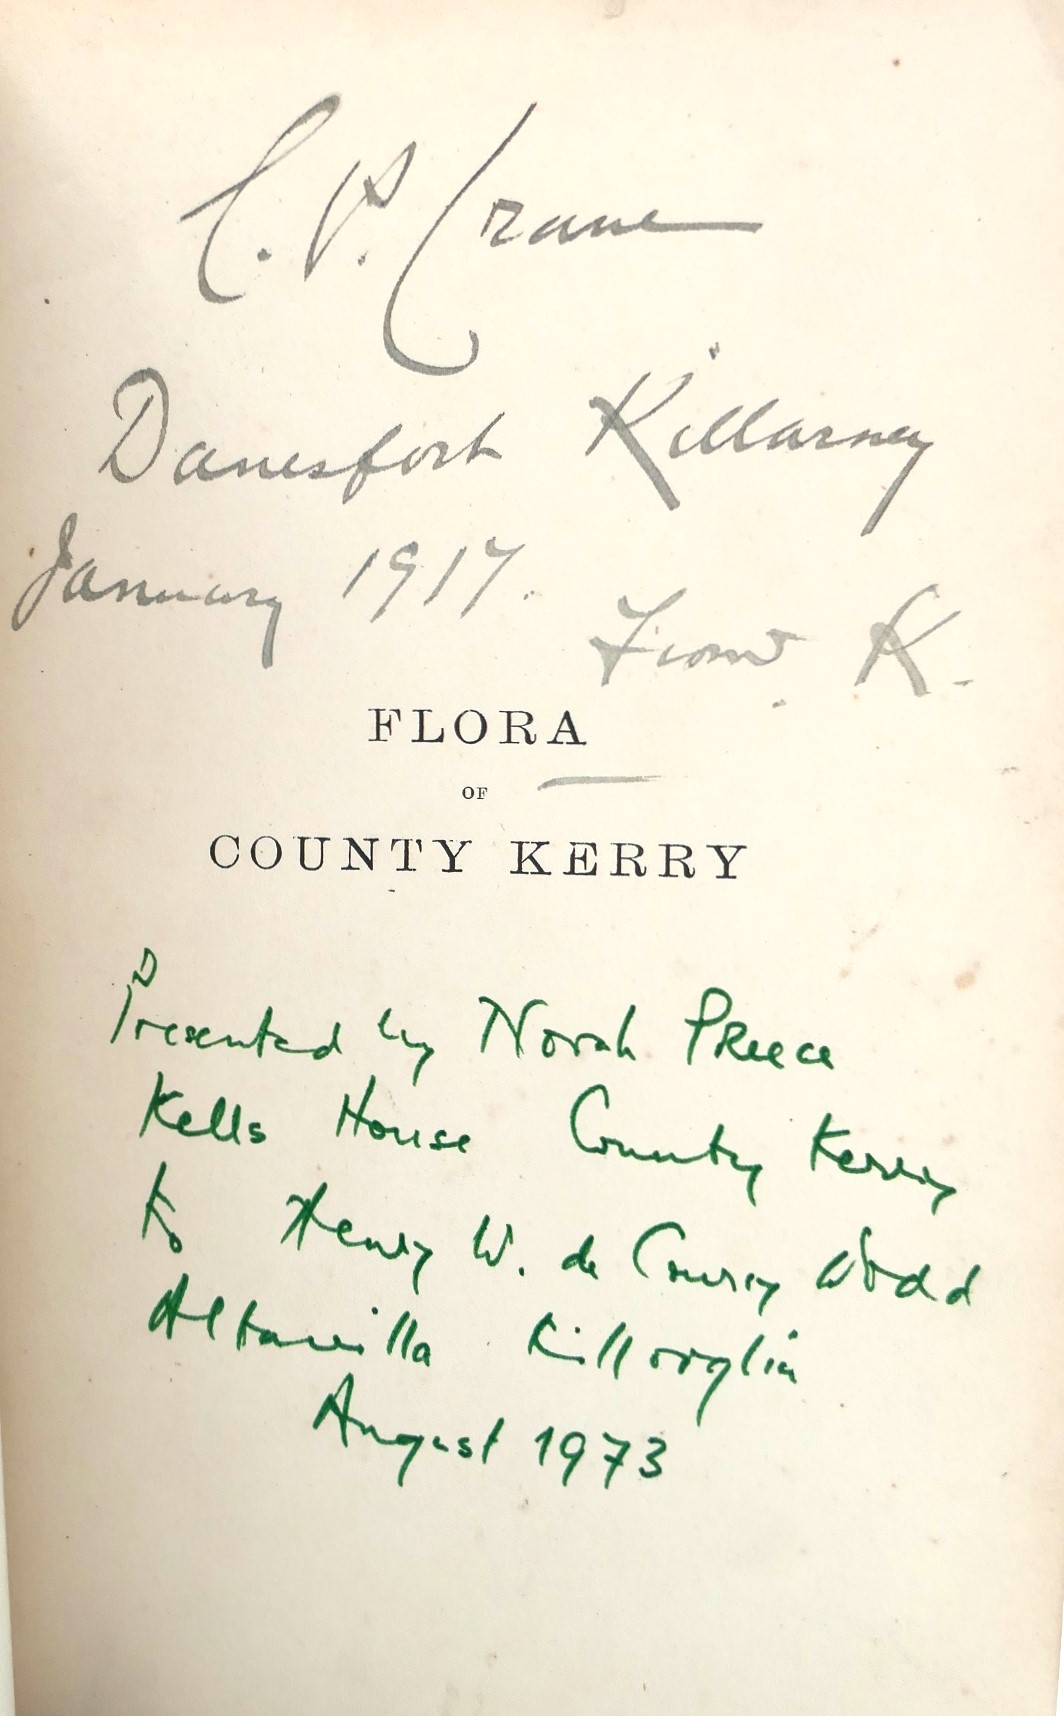 C. P. Crane
Danesfort Killarney
January 1917.
From K.
FLORA
OF
COUNTY KERRY
Presented by Norah Preece
Kells House County Kerry
to Henry W. de Courcy Wodd
Altavilla Killorglin
August 1973